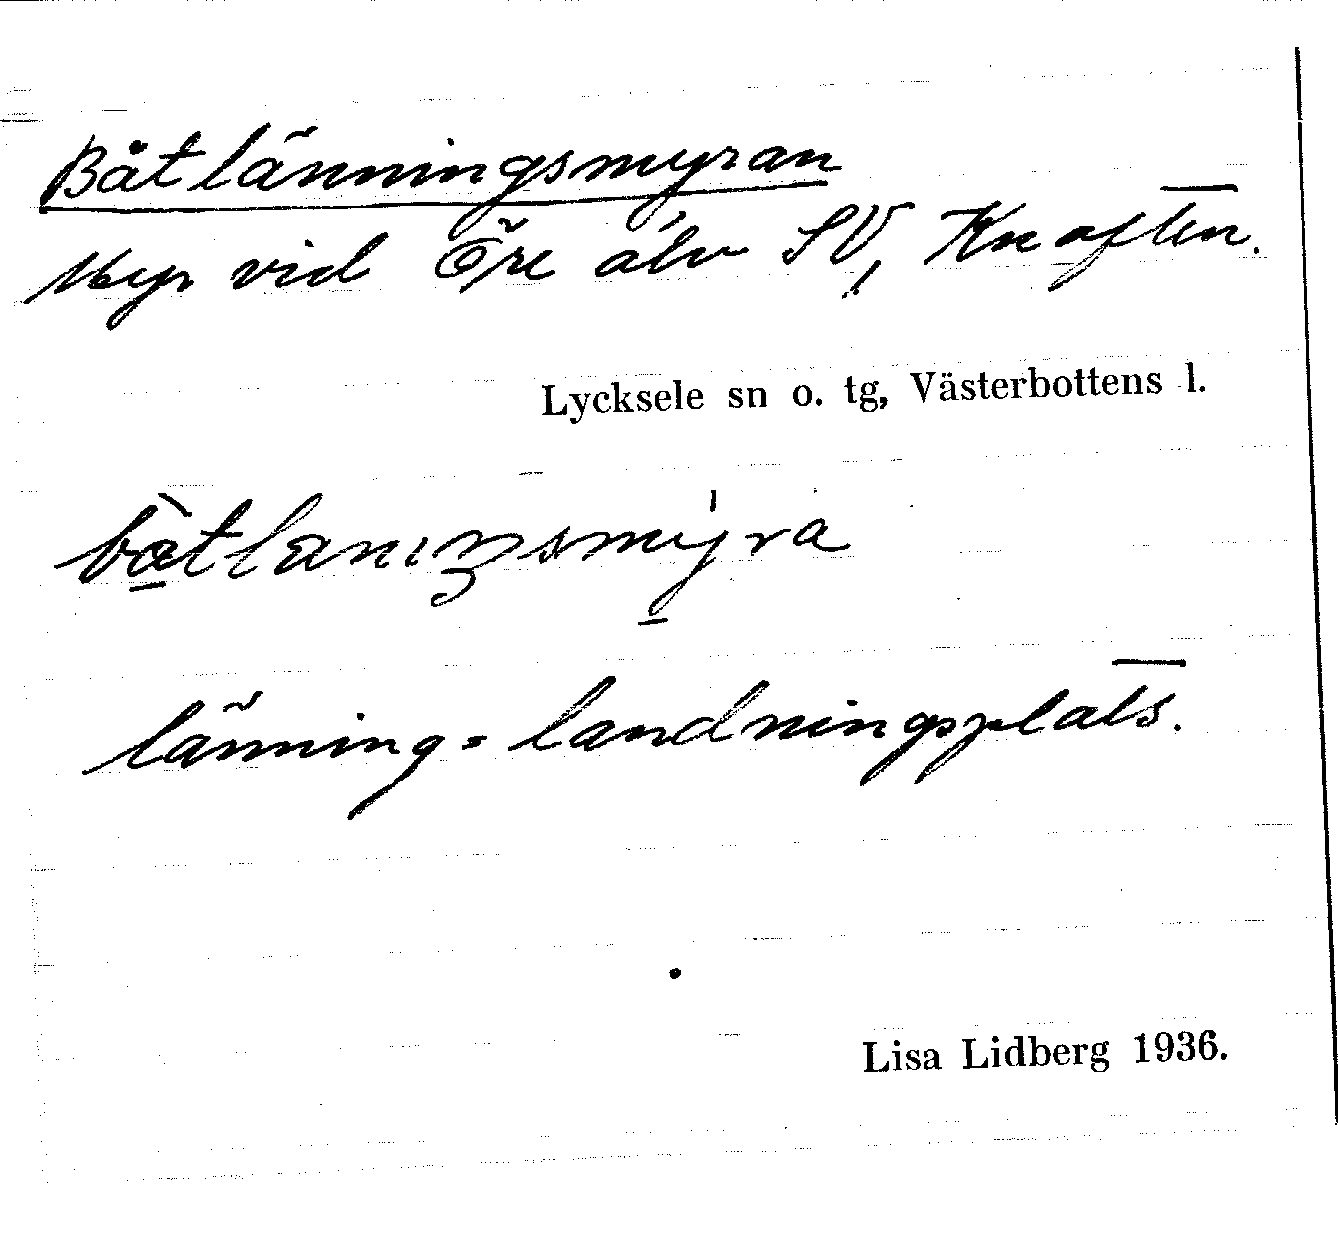 Båtlänningsmyran
Myr vid Öre älv SV, Knaften.
Lycksele sn o. tg, Västerbottens l.
länning = landningsplats.
Lisa Lidberg 1936.